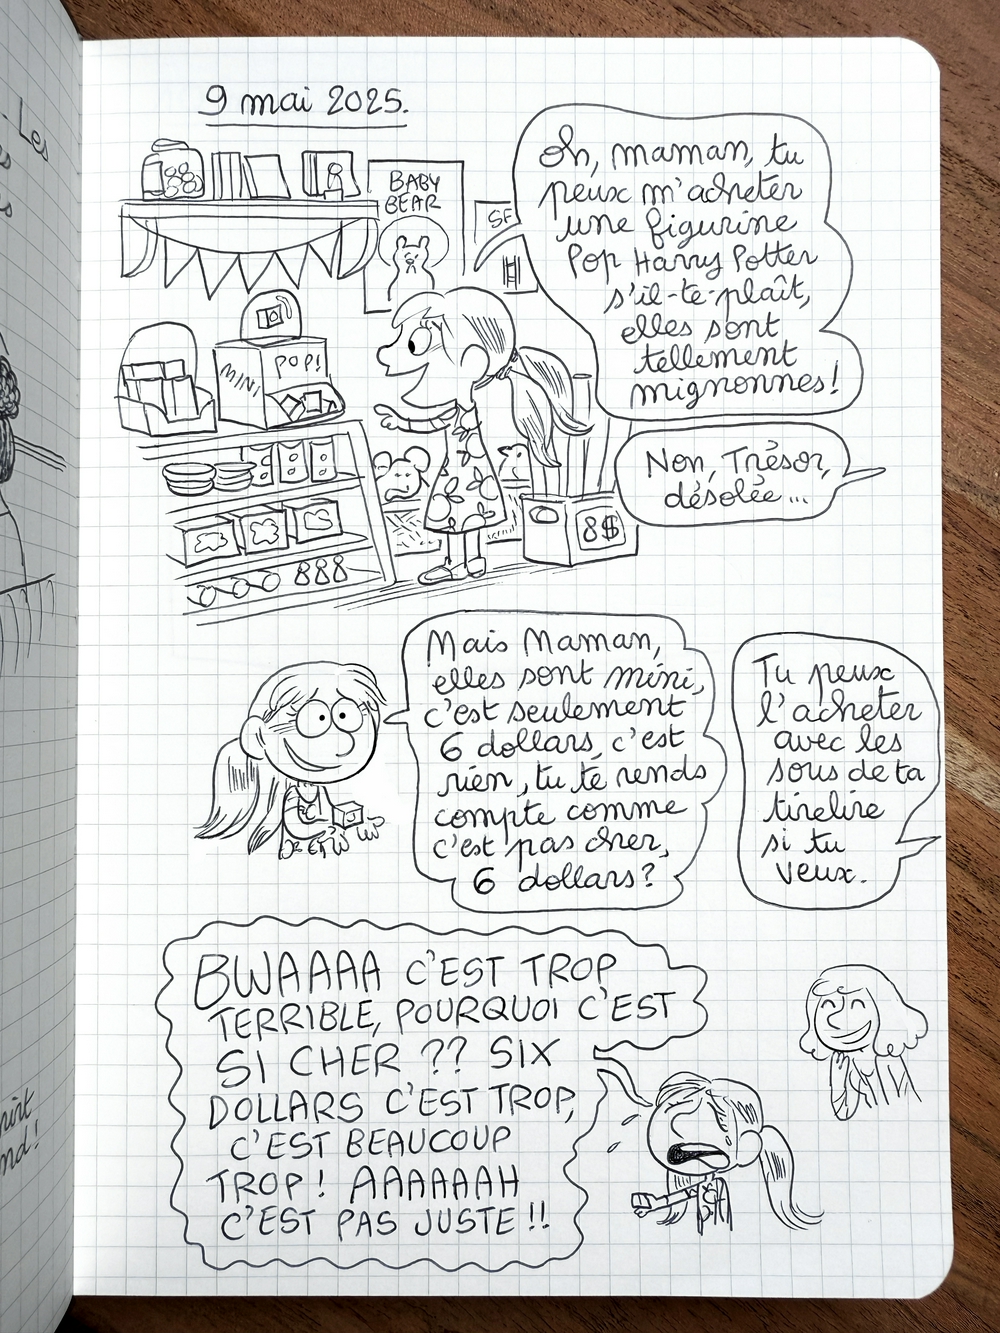 9 mai 2025.
BABY
BEAR
SF
MINI
POP!
8$
Oh, maman, tu
peux m'acheter
une figurine
Pop Harry Potter
s'il-te-plaît,
elles sont
tellement
mignonnes!
Non, Trésor,
désolée...
Mais Maman,
elles sont mini,
c'est seulement
6 dollars, c'est
rien, tu te rends
compte comme
c'est pas cher,
6 dollars?
Tu peux
l'acheter
avec les
sous de ta
tirelire
si tu
veux.
BWAAAA C'EST TROP
TERRIBLE, POURQUOI C'EST
SI CHER ?? SIX
DOLLARS C'EST TROP,
C'EST BEAUCOUP
TROP! AAAAAAH
C'EST PAS JUSTE!!
Les